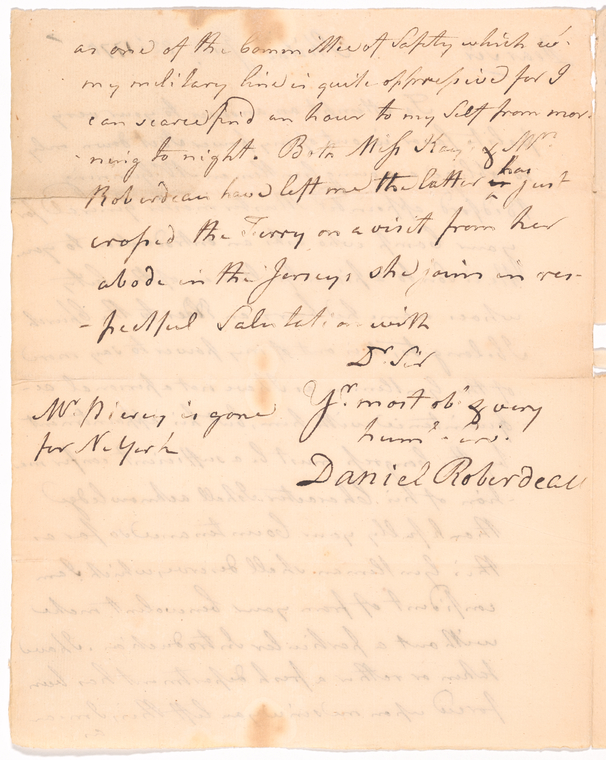 as one of the Committee of Safety which wt.
my military line is quite oppressive for I
can scarce find an hour to my self from mor-
ning to night. Both Miss Kay & Mrs.
Roberdeau have left me the latter has just
crossed the Ferry on a visit from her
abode in the Jerseys she joins in res-
-pectful Salutation with
Dr. Sir
Yr. most obt. & very
huml. Srv.
Daniel Roberdeau
Mr. Piercy is gone
for N. York